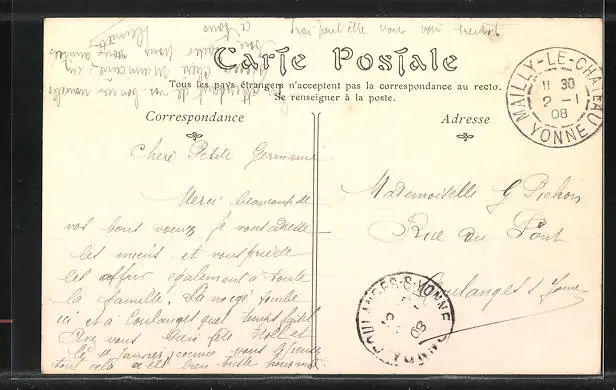 J'irai peut être vous voir
Carte Postale
Tous les pays étrangers n'acceptent pas la correspondance au recto.
Se renseigner à la poste.
Correspondance
Adresse
MAILLY-LE-CHÂTEAU
11 30
2 -1
08
YONNE
Cheré Petite Germaine
Merci beaucoup de
vos bons voeux je vous adresse
les miens et vous prie de
les offrir également à toute
la famille. La neige tombe
ici et à Coulanges quel temps fait il
Avez vous bien fêté Noël et
le 1er Janvier, comme vous
tout cela a été bien
Mademoiselle G Pichon
Rue du Pont
Coulanges s/ Yonne
COULANGES-S-YONNE
08
YONNE